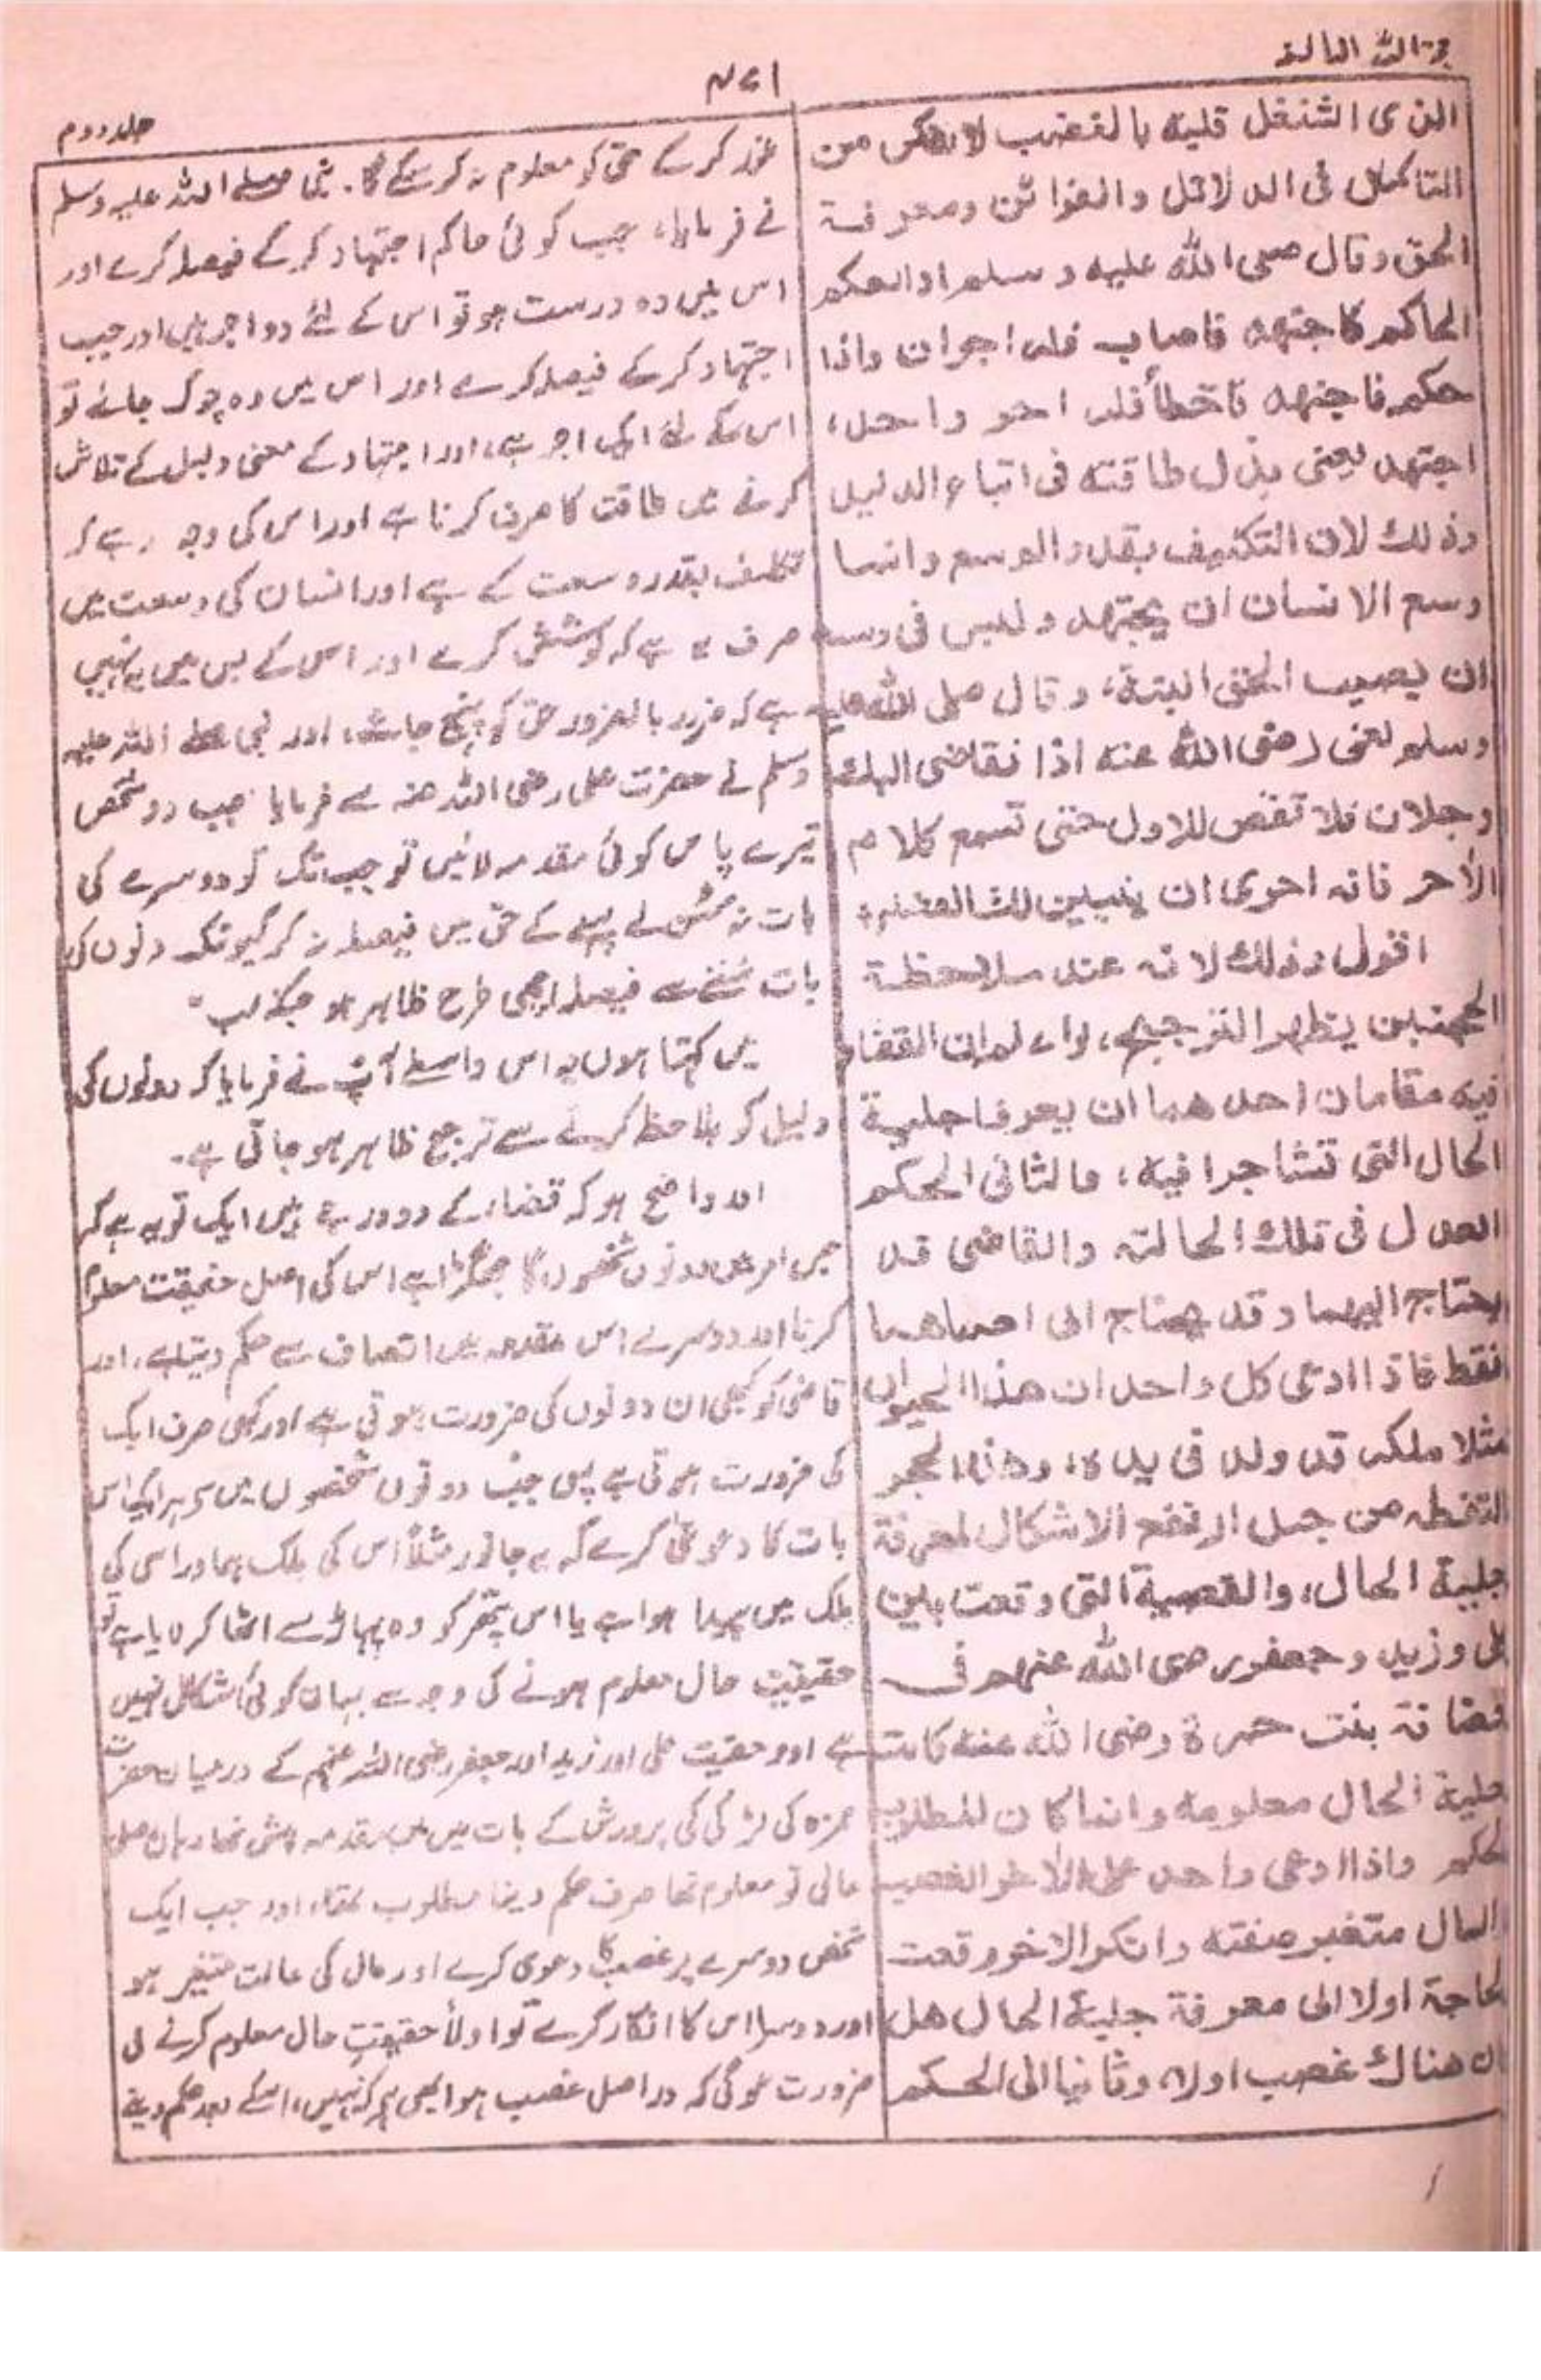 حجۃ اللہ البالغہ
۴۷۱
جلد دوم
الذی اشتغل قلبه بالغضب لا یتمکن من
التأمل فی الدلائل والقرائن ومعرفة
الحق وقال صلی اللہ علیه وسلم اذا حکم
الحاکم فاجتهد فاصاب فله اجران واذا
حکم فاجتهد فاخطأ فله اجر واحد،
اجتهد یعنی بذل طاقته فی اتباع الدلیل
وذلك لان التکلیف بقدر الوسع وانما
وسع الانسان ان یجتهد ولیس فی وسعه
ان یصیب الحق البتة، وقال صلی اللہ علیه
وسلم لعلی رضی اللہ عنه اذا تقاضی الیك
رجلان فلا تقض للاول حتی تسمع کلام
الآخر فانه احری ان یتبین لك القضاء،
اقول وذلك لانه عند ملاحظة
الحجتین یظهر الترجیح، واعلم ان القضاء
فیه مقامان احدهما ان یعرف جلیة
الحال التی تشاجرا فیه، والثانی الحکم
العدل فی تلك الحالة والقاضی قد
یحتاج الیهما وقد یحتاج الی احدهما
فقط فاذا ادعی کل واحد ان هذا الحیوان
مثلا ملکه قد ولد فی یده، وهذا الحجر
التقطه من جبل ارتفع الاشکال لمعرفة
جلیة الحال، والقضیة التی وقعت بین
علی وزید وجعفر رضی اللہ عنهم فی
حضانة بنت حمزة رضی اللہ عنه کانت
جلیة الحال معلومة وانما کان المطلوب
الحکم واذا ادعی واحد علی الآخر الغصب
والمال متغیر صفته وانکر الآخر وقعت
الحاجة اولا الی معرفة جلیة الحال هل
کان هناك غصب اولا، وثانیا الی الحکم
غور کرکے حق کو معلوم نہ کرسکے گا۔ نبی صلے اللہ علیہ وسلم
نے فرمایا، جب کوئی حاکم اجتہاد کرکے فیصلہ کرے اور
اس میں وہ درست ہو تو اس کے لئے دو اجر ہیں اور جب
اجتہاد کرکے فیصلہ کرے اور اس میں وہ چوک جائے تو
اس کے لئے ایک اجر ہے، اور اجتہاد کے معنی دلیل کے تلاش
کرنے میں طاقت کا صرف کرنا ہے اور اس کی وجہ یہ ہے کہ
تکلیف بقدر وسعت کے ہے اور انسان کی وسعت میں
صرف یہ ہے کہ کوشش کرے اور اس کے بس میں یہ نہیں
ہے کہ ضرور بالضرور حق کو پہنچ جائے، اور نبی صلے اللہ علیہ
وسلم نے حضرت علی رضی اللہ عنہ سے فرمایا جب دو شخص
تیرے پاس کوئی مقدمہ لائیں تو جب تک تو دوسرے کی
بات نہ سن لے پہلے کے حق میں فیصلہ نہ کر کیونکہ دونوں کی
بات سننے سے فیصلہ اچھی طرح ظاہر ہو
میں کہتا ہوں یہ اس واسطے آپ نے فرمایا کہ دونوں کی
دلیل کو ملاحظہ کرنے سے ترجیح ظاہر ہو جاتی ہے۔
اور واضح ہو کہ قضاء کے دو درجے ہیں ایک تو یہ ہے کہ
جس امر میں دونوں شخصوں کا جھگڑا ہے اس کی اصل حقیقت معلوم
کرنا اور دوسرے اس مقدمہ میں انصاف سے حکم دینا ہے، اور
قاضی کو کبھی ان دونوں کی ضرورت ہوتی ہے اور کبھی صرف ایک
کی ضرورت ہوتی ہے پس جب دونوں شخصوں میں سے ہر ایک اس
بات کا دعویٰ کرے کہ یہ جانور مثلاً اس کی ملک ہے اور اسی کی
ملک میں پیدا ہوا ہے یا اس پتھر کو وہ پہاڑ سے اٹھا کر لایا ہے تو
حقیقت حال معلوم ہونے کی وجہ سے یہاں کوئی اشکال نہیں
ہے اور حقیقت علی اور زید اور جعفر رضی اللہ عنہم کے درمیان حضرت
حمزہ کی لڑکی کی پرورش کے بات میں مقدمہ پیش تھا وہاں اصل
حالی تو معلوم تھا صرف حکم دینا مطلوب تھا، اور جب ایک
شخص دوسرے پر غصب کا دعوی کرے اور مال کی حالت متغیر ہو
اور دوسرا اس کا انکار کرے تو اولاً حقیقتِ حال معلوم کرنے کی
ضرورت ہوگی کہ دراصل غصب ہوا بھی ہے کہ نہیں، اسکے بعد حکم دینے